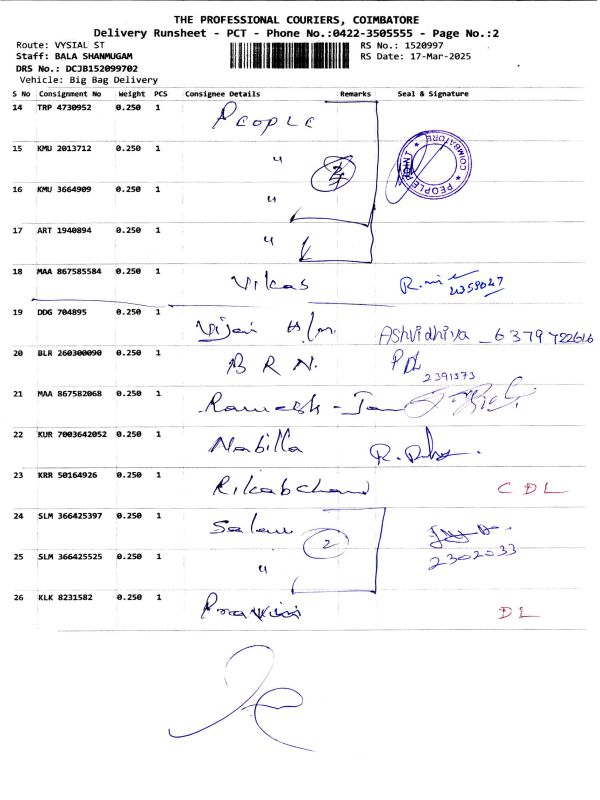 THE PROFESSIONAL COURIERS, COIMBATORE
Delivery Runsheet - PCT - Phone No.:0422-3505555 - Page No.:2
Route: VYSIAL ST RS No.: 1520997
Staff: BALA SHANMUGAM RS Date: 17-Mar-2025
DRS No.: DCJB152099702
Vehicle: Big Bag Delivery
S No Consignment No Weight PCS Consignee Details Remarks Seal & Signature
14 TRP 4730952 0.250 1 PEOPLE
15 KMU 2013712 0.250 1 "
COIMBATORE ★ PEOPLE ★
16 KMU 3664909 0.250 1 "
17 ART 1940894 0.250 1 "
18 MAA 867585584 0.250 1 Vikas
19 DDG 704895 0.250 1 Ashvidhiva - 6379722616
20 BLR 260300090 0.250 1 B R N. PDL
2391573
21 MAA 867582068 0.250 1 Ramesh - Jan
22 KUR 7003642052 0.250 1 Nabilla
23 KRR 50164926 0.250 1 Rikabchand CDL
24 SLM 366425397 0.250 1 Salem
2
2302033
25 SLM 366425525 0.250 1 "
26 KLK 8231582 0.250 1 DL